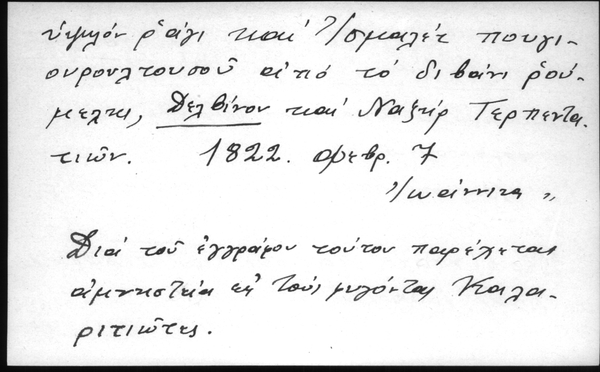 ὑψηλὸν ῥάγι καὶ Ἰσμαλὲτ πουγι-
ουρουλτουσοῦ ἀπὸ τὸ διβάνι ῥού-
μελης, Δελβίνον καὶ Ναζὴρ Τερπεντα-
τιῶν. 1822. φεβρ. 7
Ἰωάννινα „
Διὰ τοῦ ἐγγράφου τούτου παρέχεται
ἀμνηστεία εἰς τοὺς φυγόντας Καλα-
ριτιῶτες.